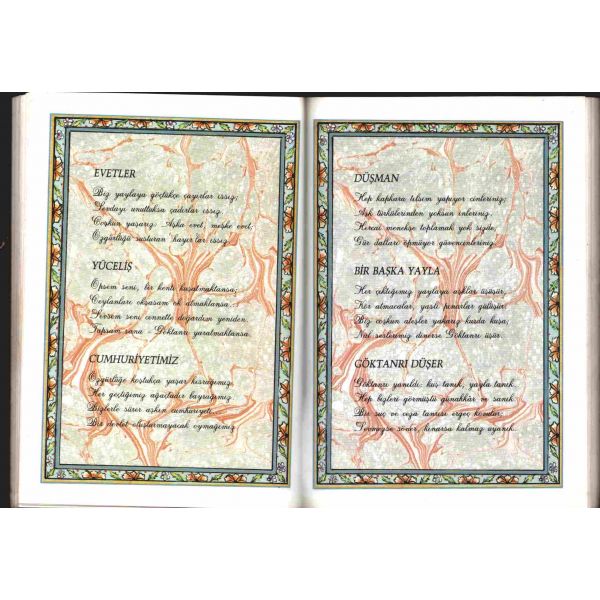 EVETLER
Biz yaylaya göçtükçe çayırlar ıssız;
Sevdayı unuttuksa çadırlar ıssız.
Coşkun yaşarız: Aşka evet, meşke evet;
Özgürlüğü susturan hayırlar ıssız.
YÜCELİŞ
Öpsem seni, bir kente kuşatmaktansa;
Ceylanlar okşasam ok atmaktansa;
Sevsem seni cennette doğardım yeniden.
Tapsam sana - Göktanrı yaratmaktansa.
CUMHURİYETİMİZ
Özgürlüğe koştukça yaşar kısrağımız;
Her geçtiğimiz ağaçtadır bayrağımız.
Bizlerle sürer aşkın cumhuriyeti.
Bir devlet oluşturmayacak oymağımız.
DÜŞMAN
Hep kapkara tılsım yapıyor cinleriniz;
Aşk türkülerinden yoksun inleriniz.
Hercai menekşe toplamak yok sizde,
Gür dalları öpmüyor güvercinleriniz.
BİR BAŞKA YAYLA
Her çıktığımız yaylaya aşklar üşüşür,
Kör almacalar, yaslı pınarlar gülüşür.
Biz coşkun ateşler yakarız kurda kuşa;
Nai seslerimiz dinerse Göktanrı üşür.
GÖKTANRI DÜŞER
Göktanrı yanıldı: kuş tanık, yayla tanık.
Hep bizleri görmüştü günahkâr ve sanık.
Bir suç ve ceza tanrısı ergeç kovulur;
Sevmezse söner, kınarsa kalmaz uyanık.